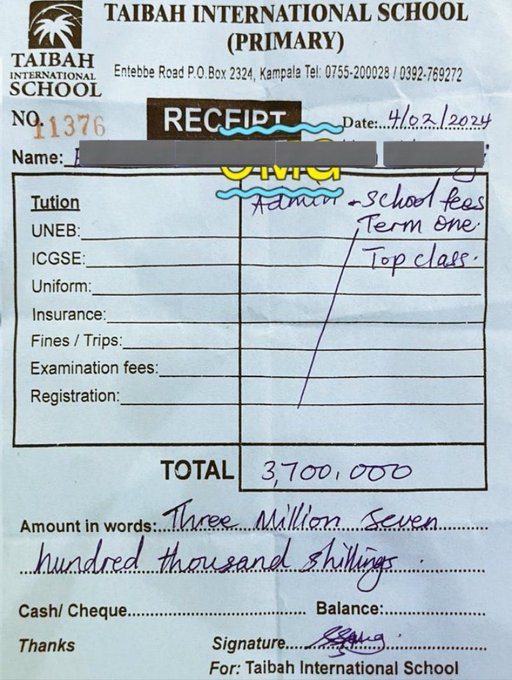 TAIBAH INTERNATIONAL SCHOOL
(PRIMARY)
TAIBAH
INTERNATIONAL
SCHOOL
Entebbe Road P.O.Box 2324, Kampala Tel: 0755-200028 / 0392-769272
NO. 11376
RECEIPT
Date: 4/02/2024
Name:
OMG
Tution
Admin - School fees
Term One.
UNEB:
ICGSE:
Top class.
Uniform:
Insurance:
Fines / Trips:
Examination fees:
Registration:
TOTAL 3,700,000
Amount in words: Three Million Seven
hundred thousand shillings.
Cash/ Cheque Balance:
Thanks Signature
For: Taibah International School